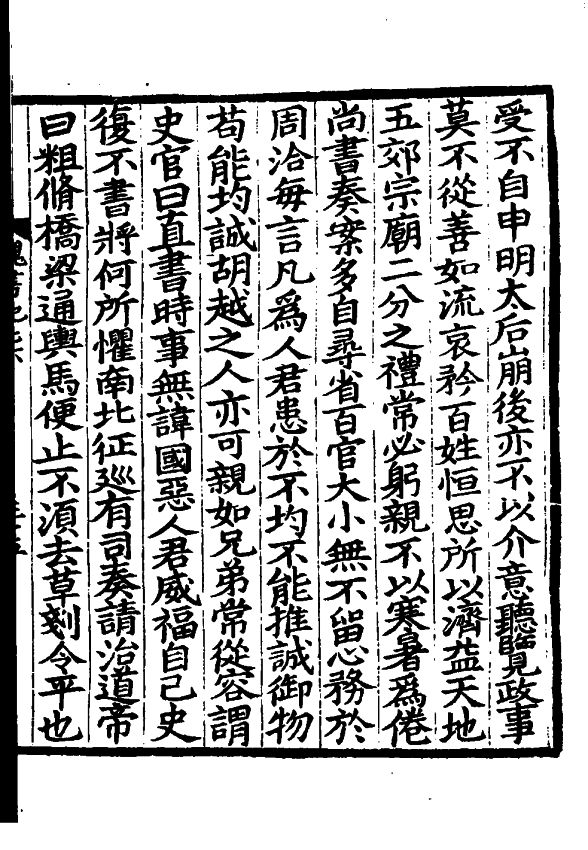 受不自申明太后崩後亦不以介意聽覽政事
莫不從善如流哀矜百姓恒思所以濟益天地
五郊宗廟二分之禮常必躬親不以寒暑爲倦
尚書奏案多自尋省百官大小無不留心務於
周洽每言凡爲人君患於不均不能推誠御物
苟能均誠胡越之人亦可親如兄弟常從容謂
史官曰直書時事無諱國惡人君威福自己史
復不書將何所懼南北征巡有司奏請治道帝
曰粗脩橋梁通輿馬便止不湏去草剗令平也